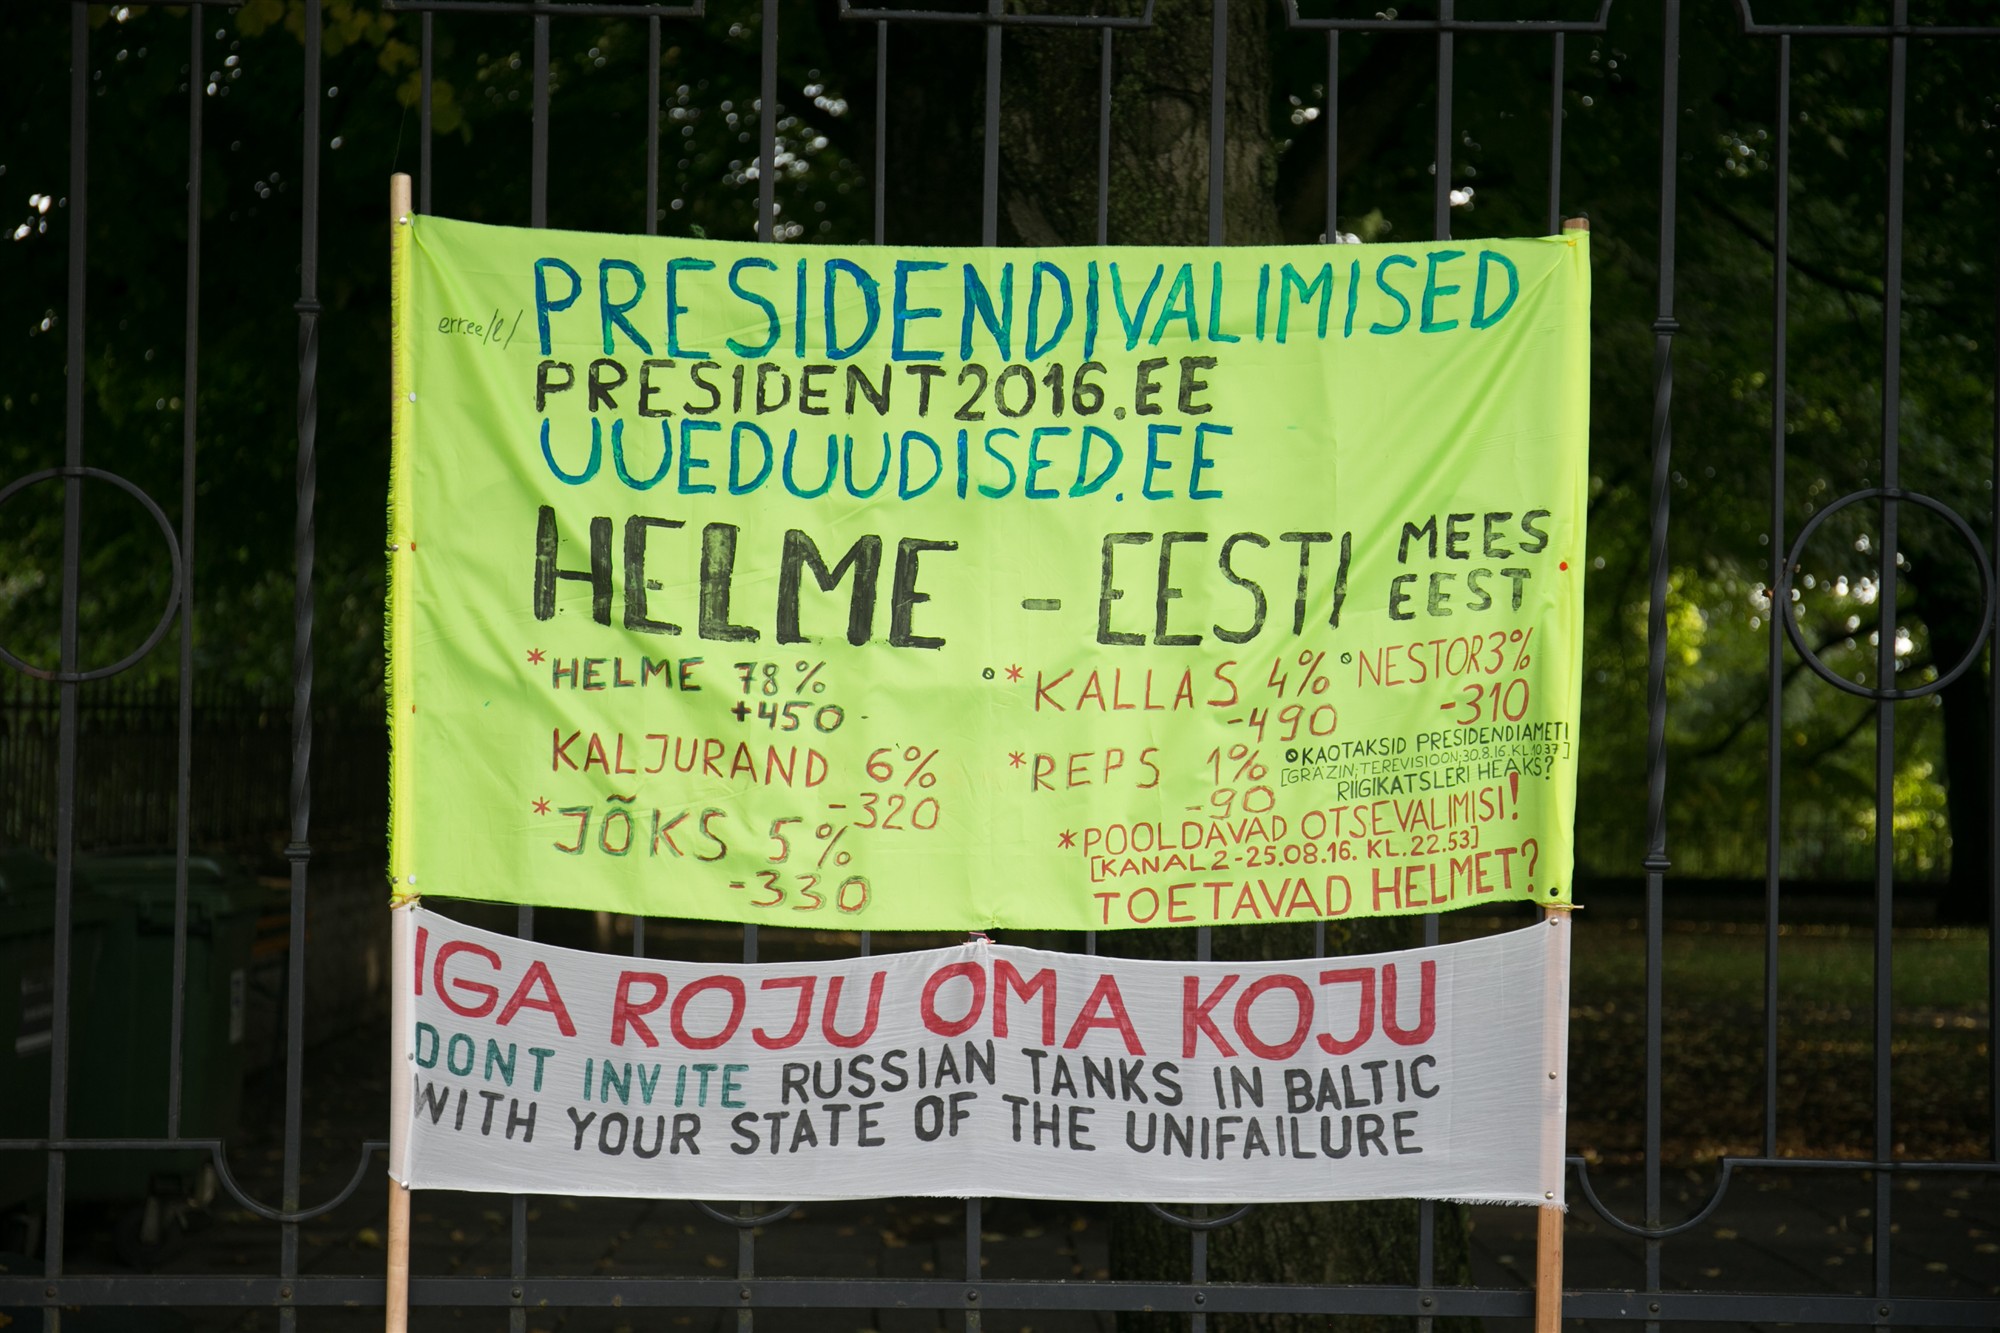 err.ee/l/
PRESIDENDIVALIMISED
PRESIDENT2016.EE
UUEDUUDISED.EE
HELME - EESTI MEES EEST
*HELME 78%
+450
KALJURAND 6%
-320
*JÕKS 5%
-330
*KALLAS 4%
-490
NESTOR 3%
-310
*REPS 1%
-90
KAOTAKSID PRESIDENDIAMETI
[GRÄZIN; TEREVISIOON; 30.8.16. KL 10.37]
RIIGIKATSLERI HEAKS?
*POOLDAVAD OTSEVALIMISI!
[KANAL 2-25.08.16. KL.22.53]
TOETAVAD HELMET?
IGA ROJU OMA KOJU
DONT INVITE RUSSIAN TANKS IN BALTIC
WITH YOUR STATE OF THE UNIFAILURE